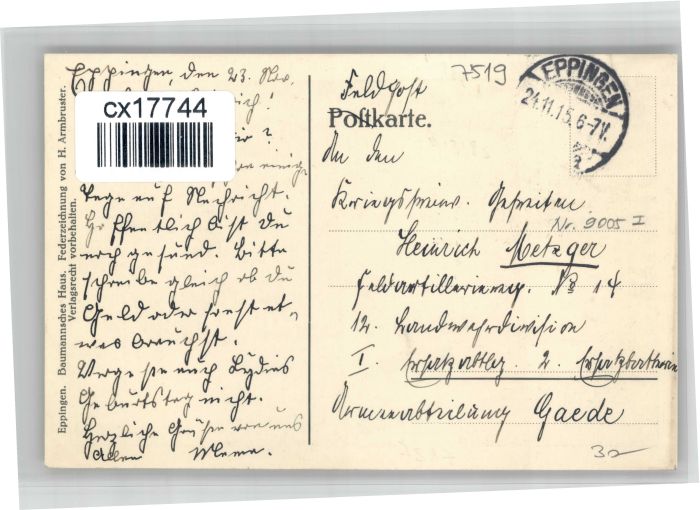 Eppingen, den 23. Nov.
cx17744
Tage auf Nachricht.
Hoffentlich bist du
noch gesund. Bitte
schreibe gleich ob du
Geld oder sonst et-
was brauchst.
Vergesse auch Lydias
Geburtstag nicht.
Herzliche Grüße von uns
allen Mama.
Eppingen. Baumannsches Haus. Federzeichnung von H. Armbruster.
Verlagsrecht vorbehalten.
7519
EPPINGEN
24.11.15.6-7N.
Feldpost
Postkarte.
An den
Kriegsfreiw. Gefreiten
Nr. 9005 I
Heinrich Metzger
Feldartilleriereg. No 14
12. Landwehrdivision
I. Ersatzabtlg. 2. Ersatzbatterie
Armeeabteilung Gaede